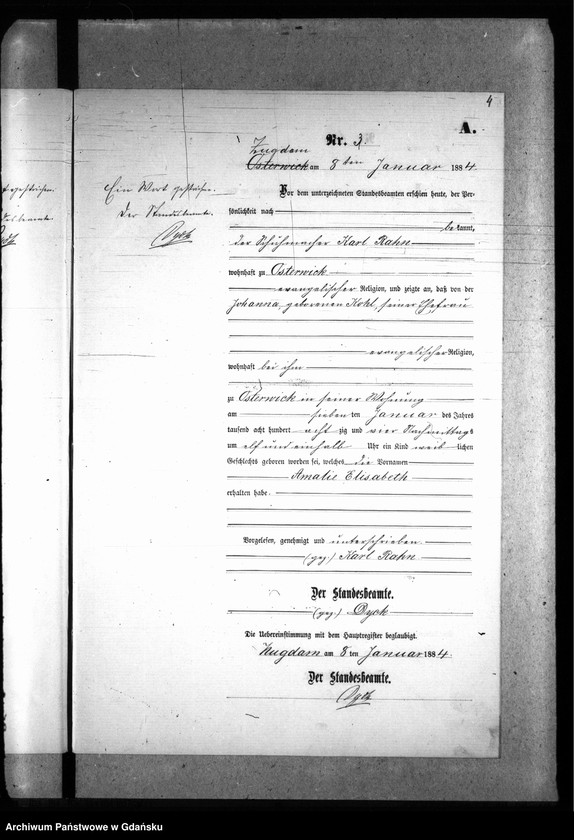 4
A.
Nr. 3.
Zugdam
Osterwick am 8 ten Januar 1884.
Ein Wort gestrichen.
Der Standesbeamte.
Dyck
Vor dem unterzeichneten Standesbeamten erschien heute, der Per-
sönlichkeit nach
bekannt,
der Schuhmacher Karl Rahn
wohnhaft zu Osterwick
evangelischer Religion, und zeigte an, daß von der
Johanna, geborenen Kohl, seiner Ehefrau
evangelischer Religion,
wohnhaft bei ihm
zu Osterwick in seiner Wohnung
am sieben ten Januar des Jahres
tausend acht hundert acht zig und vier Nachmittags
um elf und einhalb Uhr ein Kind weib lichen
Geschlechts geboren worden sei, welches die Vornamen
Amalie Elisabeth
erhalten habe.
Vorgelesen, genehmigt und unterschrieben.
(gez.) Karl Rahn
Der Standesbeamte.
(gez.) Dyck
Die Uebereinstimmung mit dem Hauptregister beglaubigt.
Zugdam am 8 ten Januar 1884.
Der Standesbeamte.
Dyck
Archiwum Państwowe w Gdańsku